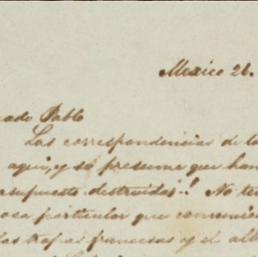 Mexico 26.
ado Pablo
Las correspondencias de la
aqui, y se presume que han
supuesto destruidas! No te
cosa particular que comunic
las tropas francesas y el